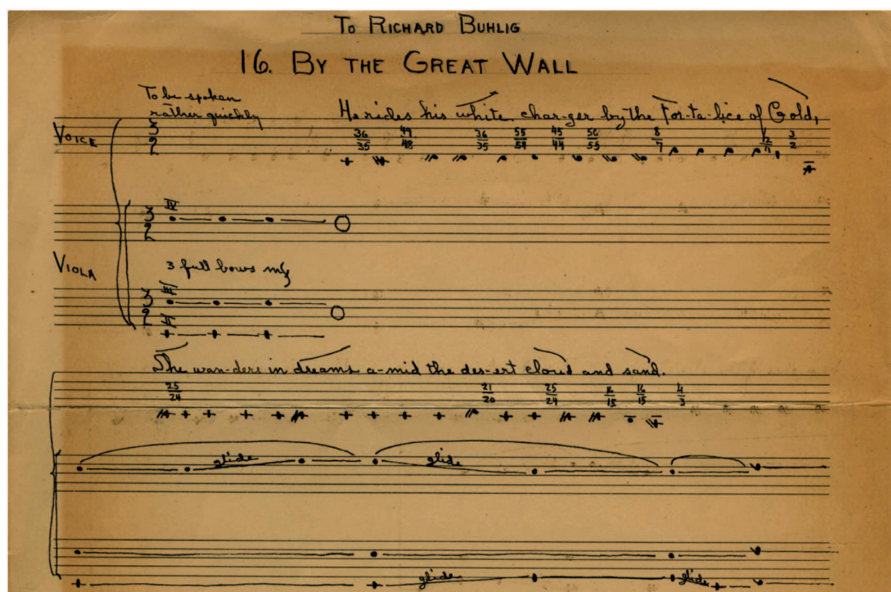 To Richard Buhlig
16. By the Great Wall
To be spoken
rather quickly
He rides his white char-ger by the For-ta-lice of Gold,
Voice
36/35 49/48 36/35 55/54 45/44 56/55 8/7 12/11 3/2
IV
Viola
3 full bows mf
III
She wan-ders in dreams a-mid the des-ert cloud and sand.
25/24 21/20 25/24 16/15 16/15 4/3
glide glide
glide glide